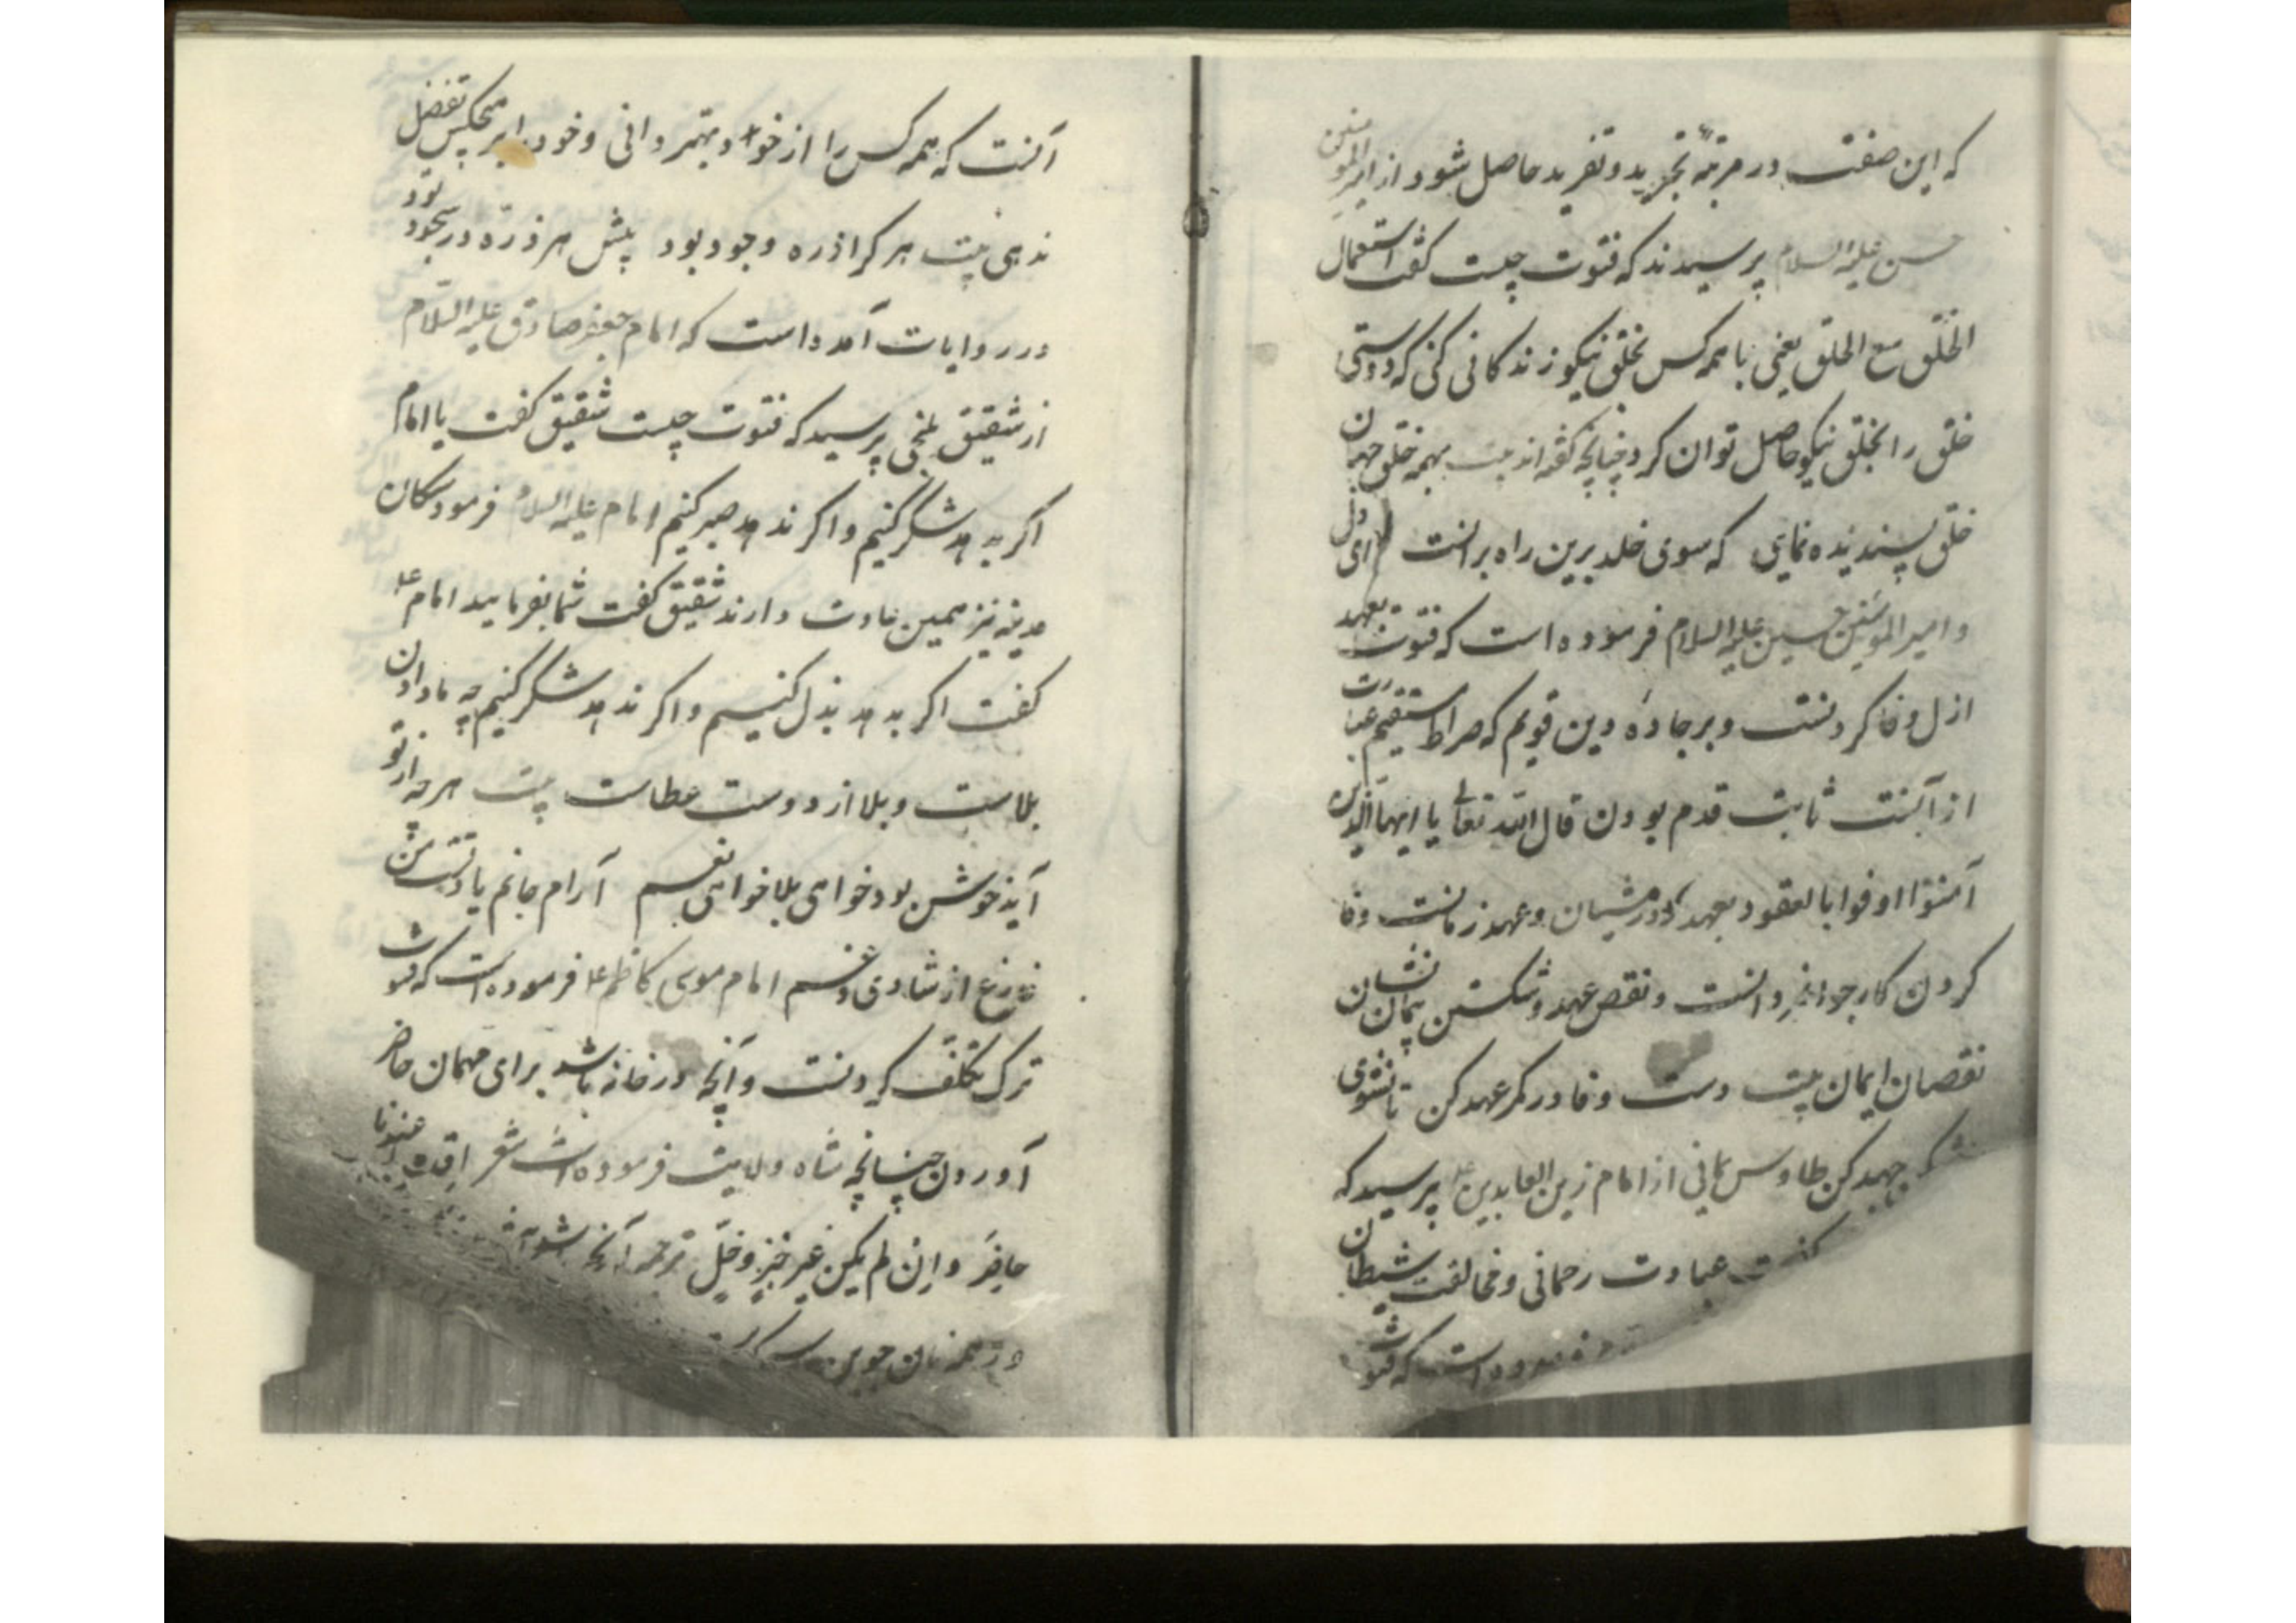 که این صفت در مرتبهٔ تجرید و تفرید حاصل شود و از امیر المومنین
حسن علیه السلام پرسیدند که فتوت چیست گفت استعمال
الخلق مع الخلق یعنی با همه کس بخلق نیکو زندکانی کنی که دوستی
خلق را بخلق نیکو حاصل توان کرد چنانچه گفته اند بیت بهمه خلق جهان
خلق پسندیده نمای که سوی خلد برین راه برانست
و امیر المومنین حسین علیه السلام فرموده است که فتوت بعهد
ازل وفا کردنست و بر جادهٔ دین قویم که صراط مستقیم عبارت
از آنست ثابت قدم بودن قال الله تعالی یا ایها الذین
آمنوا اوفوا بالعقود بعهد و عهد وفا
کردن کار جوانمردانست و نقص عهد و شکستن پیمان نشان
نقصان ایمان بیت دست وفا در کمر عهد کن تا نشوی
جهد کن طاوس یمانی از امام زین العابدین ع پرسید که
عبادت رحمانی و مخالفت شیطان
فرموده است که فتوت
آنست که همه کس را از خود بهتر دانی و خود را بر هیچکس تفضل
ندهی بیت هر کرا ذره وجود بود پیش هر ذره در سجود بود
در روایات آمده است که امام جعفر صادق علیه السلام
از شقیق بلخی پرسید که فتوت چیست شقیق کفت یا امام
اکر بدهد شکر کنیم و اکر ندهد صبر کنیم امام علیه السلام فرمود سکان
مدینه نیز همین عادت دارند شقیق کفت شما بفرمایید امام ع
کفت اکر بدهد بذل کنیم و اکر ندهد شکر کنیم چه نادادن
بلاست و بلا از دوست عطاست بیت هر چه از تو
آید خوش بود خواهی بلا خواهی نعم آرام جانم یاد تست
فارغ از شادی و غم امام موسی کاظم ع فرموده است که فتوت
ترک تکلف کردنست و آنچه در خانه باشد برای مهمان حاضر
آوردن چنانچه شاه ولایت فرموده است شعر عندنا
حاضر و ان لم یکن غیر خبز و خل ترجمه آنچه
در همه نان جوین